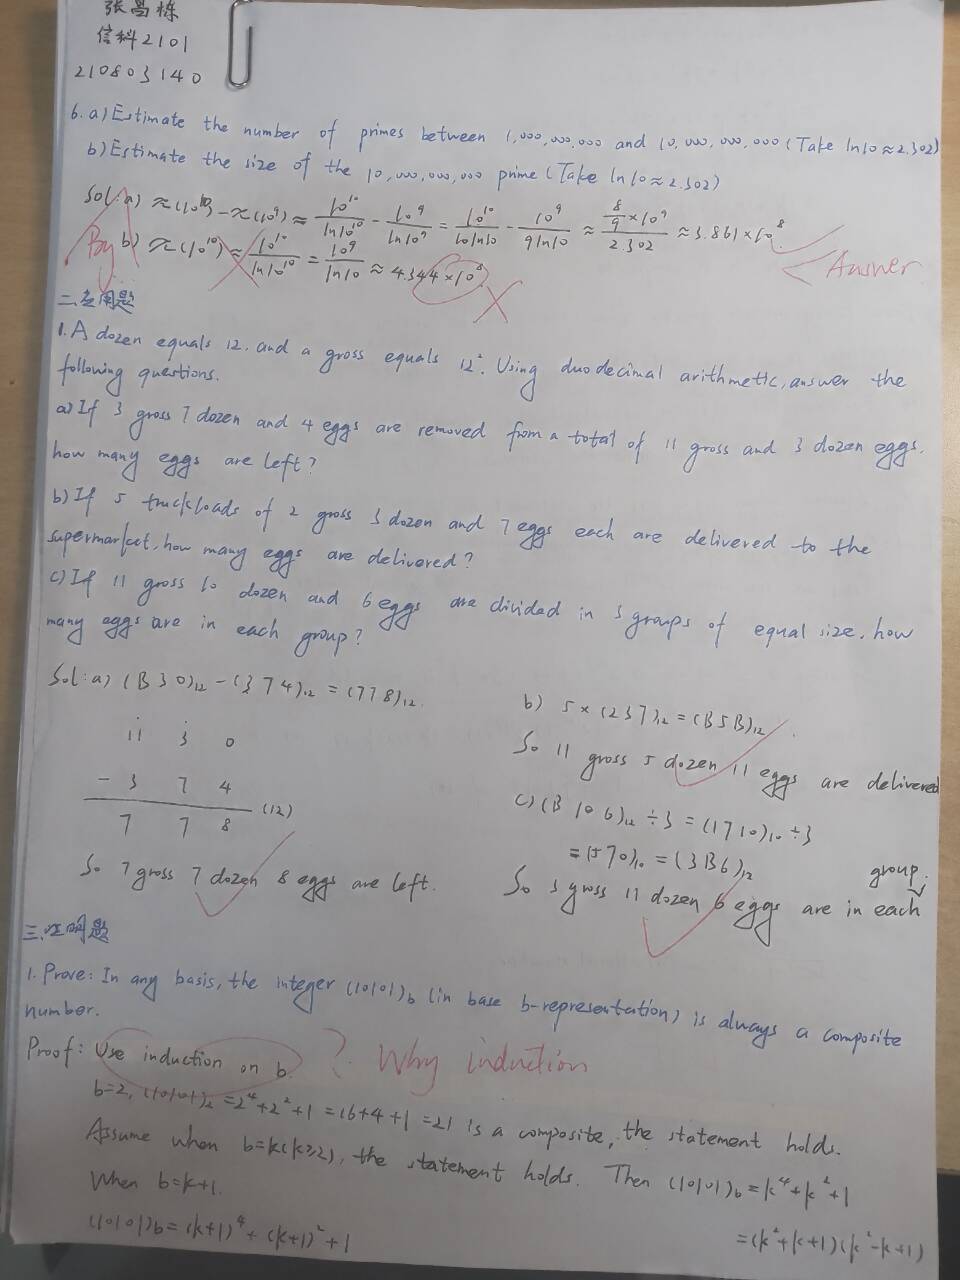 张昌栋
信科2101
210803140
6. a) Estimate the number of primes between 1,000,000,000 and 10,000,000,000 (Take ln10≈2.302)
b) Estimate the size of the 10,000,000,000 prime (Take ln10≈2.302)
Sol: a) π(10^10) - π(10^9) ≈ 10^10/ln10^10 - 10^9/ln10^9 = 10^10/10ln10 - 10^9/9ln10 ≈ (8/9×10^9)/2.302 ≈ 3.861×10^8
Answer
By
b) π(10^10) ≈ 10^10/ln10^10 = 10^9/ln10 ≈ 4.344×10^8
二.应用题
1. A dozen equals 12. and a gross equals 12². Using duodecimal arithmetic, answer the
following questions.
a) If 3 gross 7 dozen and 4 eggs are removed from a total of 11 gross and 3 dozen eggs.
how many eggs are left?
b) If 5 truckloads of 2 gross 3 dozen and 7 eggs each are delivered to the
supermarket, how many eggs are delivered?
c) If 11 gross 10 dozen and 6 eggs are divided in 3 groups of equal size. how
many eggs are in each group?
Sol: a) (B30)₁₂ - (374)₁₂ = (778)₁₂.
11 3 0
- 3 7 4
(12)
7 7 8
So 7 gross 7 dozen 8 eggs are left.
b) 5×(237)₁₂ = (B5B)₁₂.
So 11 gross 5 dozen 11 eggs are delivered
c) (B 10 6)₁₂ ÷ 3 = (1710)₁₀ ÷ 3
= (570)₁₀ = (3B6)₁₂
So 3 gross 11 dozen 6 eggs are in each group.
三.证明题
1. Prove: In any basis, the integer (10101)b (in base b-representation) is always a composite
number.
Proof: Use induction on b. ? Why induction
b=2, (10101)₂ = 2⁴+2²+1 = 16+4+1 = 21 is a composite, the statement holds.
Assume when b=k(k≥2), the statement holds. Then (10101)b = k⁴+k²+1
= (k²+k+1)(k²-k+1)
When b=k+1.
(10101)b = (k+1)⁴+(k+1)²+1